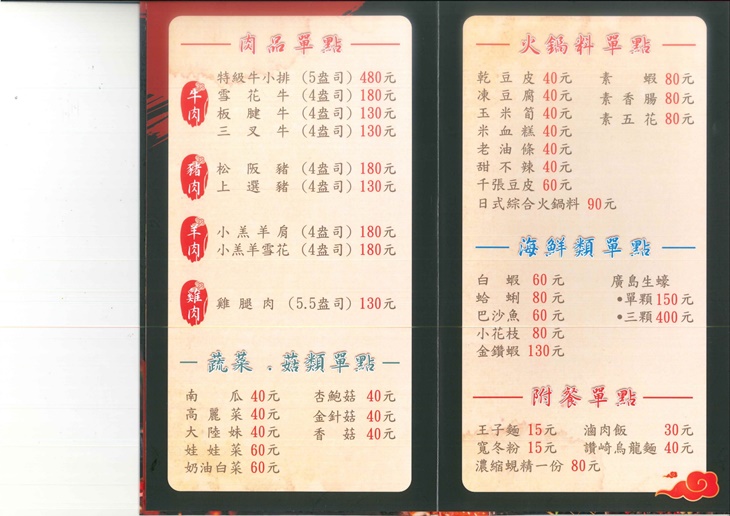 肉品單點
牛肉
特級牛小排 (5盎司) 480元
雪花牛 (4盎司) 180元
板腱牛 (4盎司) 130元
三叉牛 (4盎司) 130元
豬肉
松阪豬 (4盎司) 180元
上選豬 (4盎司) 130元
羊肉
小羔羊肩 (4盎司) 180元
小羔羊雪花 (4盎司) 180元
雞肉
雞腿肉 (5.5盎司) 130元
蔬菜.菇類單點
南瓜 40元
高麗菜 40元
大陸妹 40元
娃娃菜 60元
奶油白菜 60元
杏鮑菇 40元
金針菇 40元
香菇 40元
火鍋料單點
乾豆皮 40元
凍豆腐 40元
玉米筍 40元
米血糕 40元
老油條 40元
甜不辣 40元
千張豆皮 60元
日式綜合火鍋料 90元
素蝦 80元
素香腸 80元
素五花 80元
海鮮類單點
白蝦 60元
蛤蜊 80元
巴沙魚 60元
小花枝 80元
金鑽蝦 130元
廣島生蠔
•單顆150元
•三顆400元
附餐單點
王子麵 15元
寬冬粉 15元
濃縮蜆精一份 80元
滷肉飯 30元
讚崎烏龍麵 40元